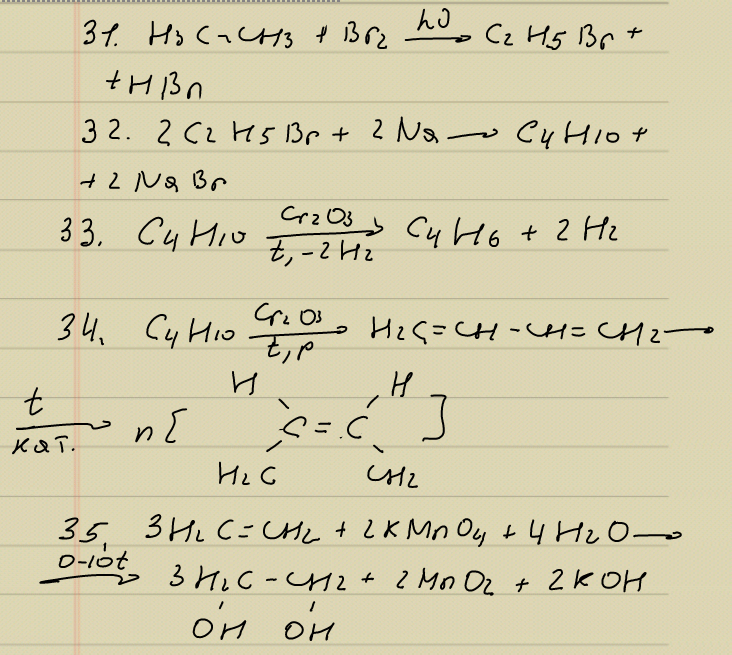 31. H3C-CH3 + Br2 hν→ C2H5Br +
+ HBr
32. 2C2H5Br + 2Na → C4H10 +
+ 2NaBr
33. C4H10 Cr2O3→ t, -2H2 C4H6 + 2H2
34. C4H10 Cr2O3→ t, p H2C=CH-CH=CH2 →
t→ кат. n[ H H C=C H2C CH2 ]
35. 3H2C=CH2 + 2KMnO4 + 4H2O →
0-10t→ 3H2C-CH2 + 2MnO2 + 2KOH
OH OH